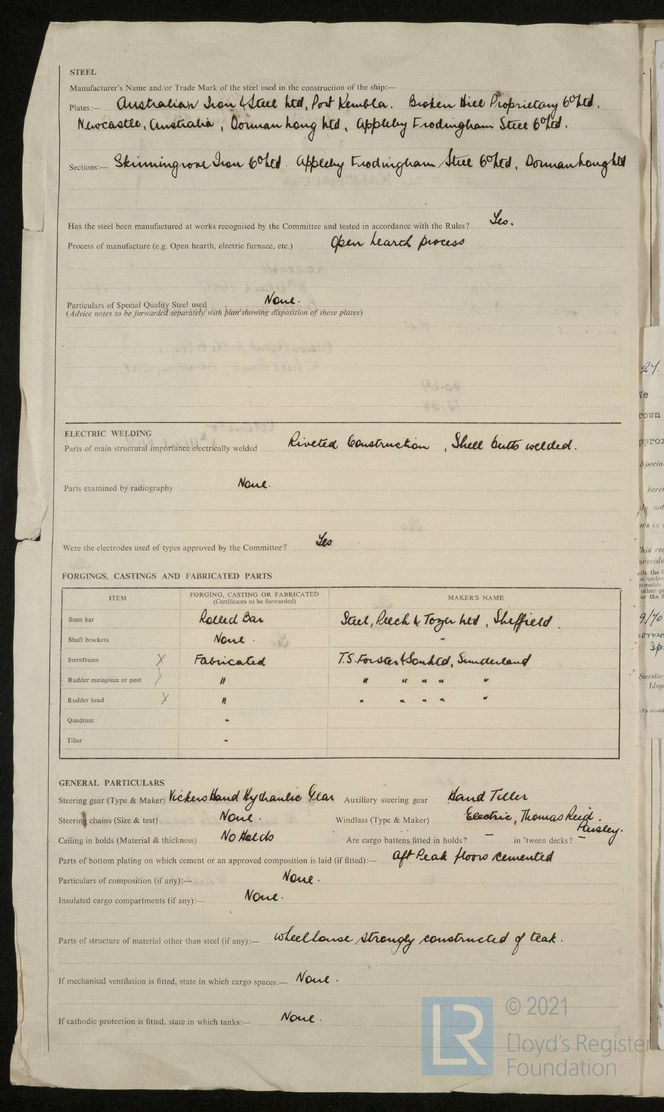 STEEL
Manufacturer's Name and/or Trade Mark of the steel used in the construction of the ship:—
Plates:— Australian Iron & Steel Ltd, Port Kembla. Broken Hill Proprietary Co Ltd,
Newcastle, Australia, Dorman Long Ltd, Appleby Frodingham Steel Co Ltd.
Sections:— Skinningrove Iron Co Ltd. Appleby Frodingham Steel Co Ltd, Dorman Long Ltd
Has the steel been manufactured at works recognised by the Committee and tested in accordance with the Rules? Yes.
Process of manufacture (e.g. Open hearth, electric furnace, etc.) Open hearth process
Particulars of Special Quality Steel used None.
(Advice notes to be forwarded separately with plan showing disposition of these plates)
ELECTRIC WELDING
Parts of main structural importance electrically welded Riveted Construction, Shell butts welded.
Parts examined by radiography None.
Were the electrodes used of types approved by the Committee? Yes
FORGINGS, CASTINGS AND FABRICATED PARTS
ITEM FORGING, CASTING OR FABRICATED MAKER'S NAME
(Certificates to be forwarded)
Stem bar Rolled Bar Steel, Peech & Tozer Ltd, Sheffield
Shaft brackets None. "
Sternframe X Fabricated T.S. Forster & Son Ltd, Sunderland
Rudder mainpiece or post / " " " " " "
Rudder head X " " " " " "
Quadrant -
Tiller -
GENERAL PARTICULARS
Steering gear (Type & Maker) Vickers Hand Hydraulic Gear Auxiliary steering gear Hand Tiller
Steering chains (Size & test) None. Windlass (Type & Maker) Electric, Thomas Reid. Paisley.
Ceiling in holds (Material & thickness) No Holds Are cargo battens fitted in holds? — in 'tween decks? —
Parts of bottom plating on which cement or an approved composition is laid (if fitted):— Aft Peak floors cemented
Particulars of composition (if any):— None.
Insulated cargo compartments (if any):— None.
Parts of structure of material other than steel (if any):— Wheelhouse strongly constructed of teak.
If mechanical ventilation is fitted, state in which cargo spaces:— None.
If cathodic protection is fitted, state in which tanks:— None.
LR © 2021
Lloyd's Register
Foundation